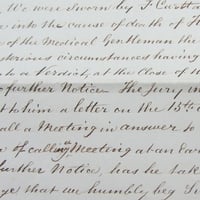 We were sworn by F. Curtt
into the cause of death of
of the Medical Gentleman the
sterious circumstances having
to a Verdict, at the close of
further Notice. The Jury in
t to him a letter on the 15th
all a Meeting in answer to
of calling Meeting at an ear
further Notice, has he tak
ge that we humbly beg